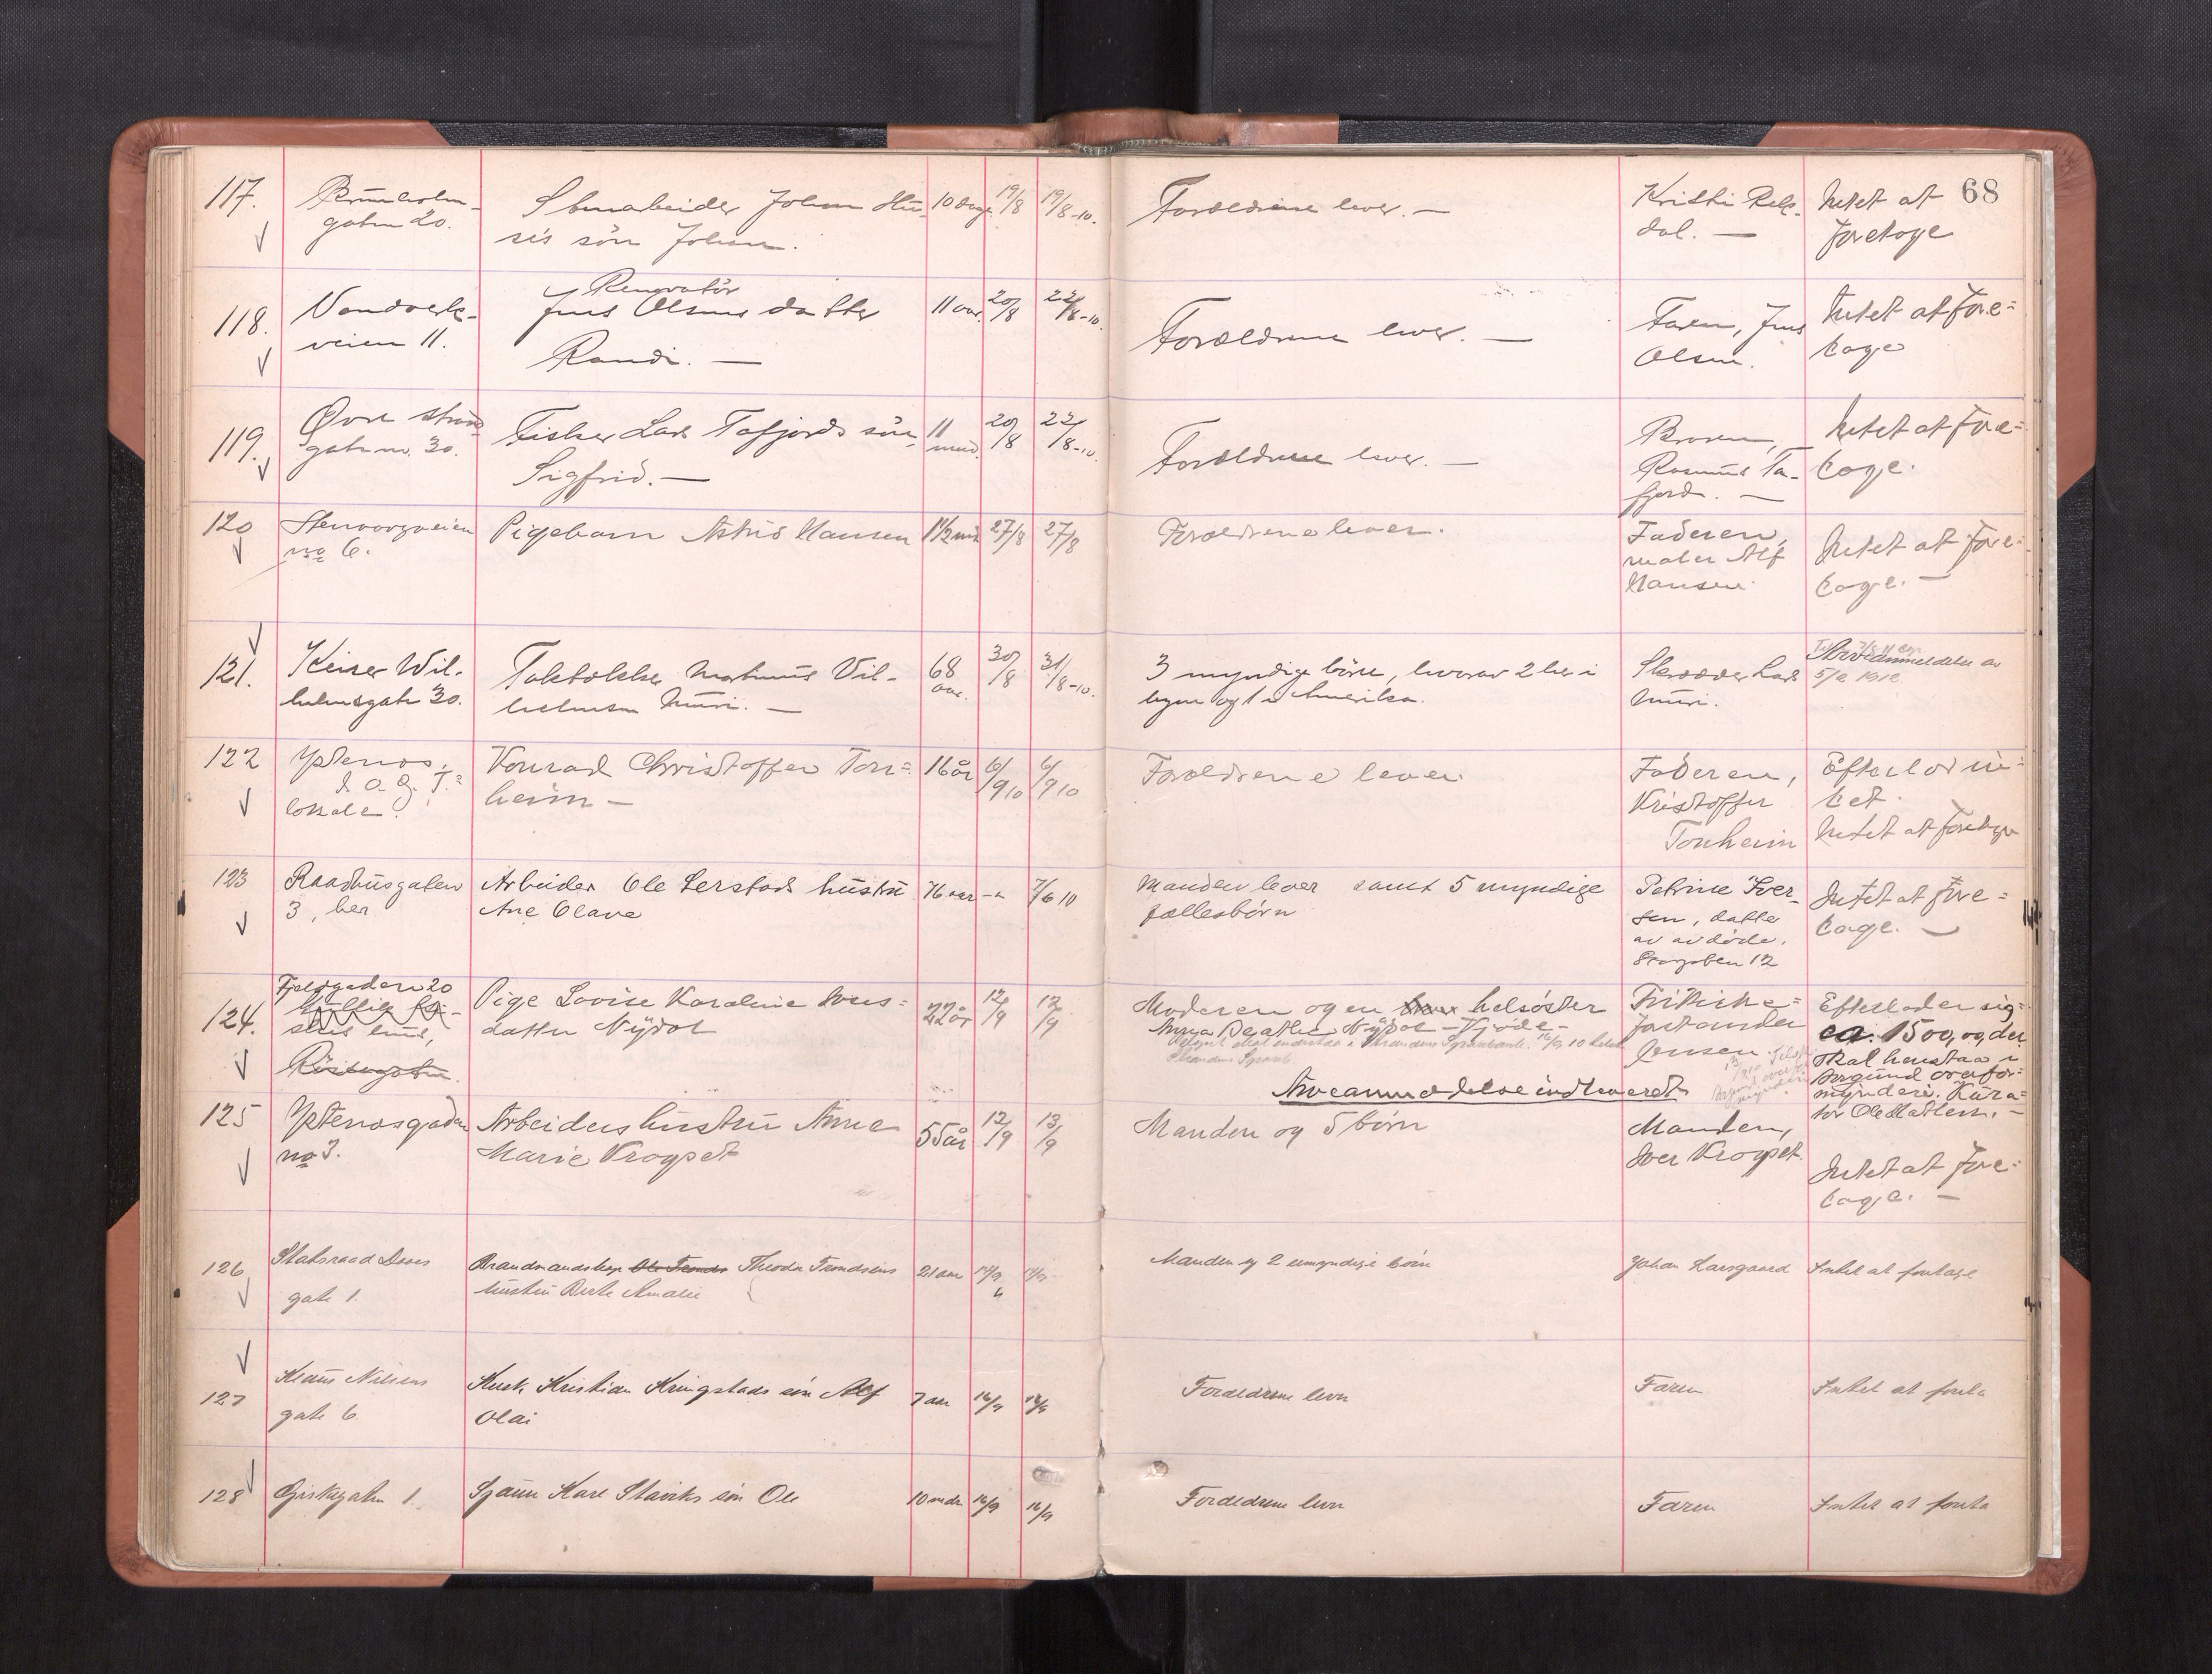 68
117.
gaten 20.
Stenarbeider Johan Hu-
sës sön Johan.
10 dage
19/8
19/8-10.
Forældrene lever. —
Kristi Rels-
dal. —
Intet at
foretage
118.
Vandverks-
veien 11.
Renovatör
Jens Olsens datter
Randi. —
11 aar.
20/8
22/8-10.
Forældrene lever. —
Faren, Jens
Olsen.
Intet at fore=
tage
119.
Øvre strand
gate no. 30.
Fisker Lars Tafjords sön,
Sigfrid. —
11
mnd.
20/8
22/8-10.
Forældrene lever. —
Broren,
Rasmus Ta-
fjord. —
Intet at fore=
tage.
120
no 6.
Pigebarn Astrid Hansen
1½ md
27/8
27/8
Forældrene lever.
Faderen,
maler Alf
Hansen.
Intet at fore=
tage. —
121.
Keiser Wil-
helmsgate 30.
Taktækker Martinus Vil-
helmsen Muri. —
68
aar.
30/8
31/8-10.
3 myndige börn, hvorav 2 her i
byen og 1 i Amerika.
Skrædder Lars
Muri.
Arveanmeldelse av
5/2 1912.
122
Ystenes,
I. O. G. T.=
lokale.
Konrad Christoffer Ton=
heim —
16 år
6/9 10
6/9 10
Forældrene lever.
Faderen,
Kristoffer
Tonheim
Efterlod in=
tet.
Intet at foretage
123
Raadhusgaten
3, her
Arbeider Ole Lerstads hustru
Ane Olave
76 aar
7/6 10
Manden lever samt 5 myndige
fællesbörn
Petrine Iver-
sen, datter
av avdöde.
Storgaten 12
Intet at fore=
tage. —
124.
Fjeldgaden 20
Röisegaten.
Pige Lovise Karoline Ivers=
datter Nydöl
22 år
12/9
12/9
Moderen og en helsöster
Arveanmeldelse indleveret
Fattichef=
forstander
Jensen.
Efterlader sig
ca. 1500, og der
skal henstaa i
Borgund overfor=
mynderi. Kura=
tor Ole Hatlem. —
125
Ystenesgaden
no 3.
Arbeiders hustru Anne
Marie Krogset
55 år
12/9
13/9
Manden og 5 börn
Manden,
Iver Krogset.
Intet at fore=
tage. —
126
Statsraad Daaes
gate 1.
Brandmandskap Ole Trends Theodor Trondsens
hustru Berte Amalie
21 aar
14/9
Manden og 2 umyndige börn
Johan Larsgaard
Intet at foretage
127
Klaus Nilsens
gate 6
Kusk Kristian Kringstads sön Alf
Olai
7 aar
16/9
Forældrene lever
Faren
Intet at foreta
128
Giskegaten 1.
Sjauer Karl Staviks sön Ole
10 mdr
16/9
16/9
Forældrene lever
Faren
Intet at foreta